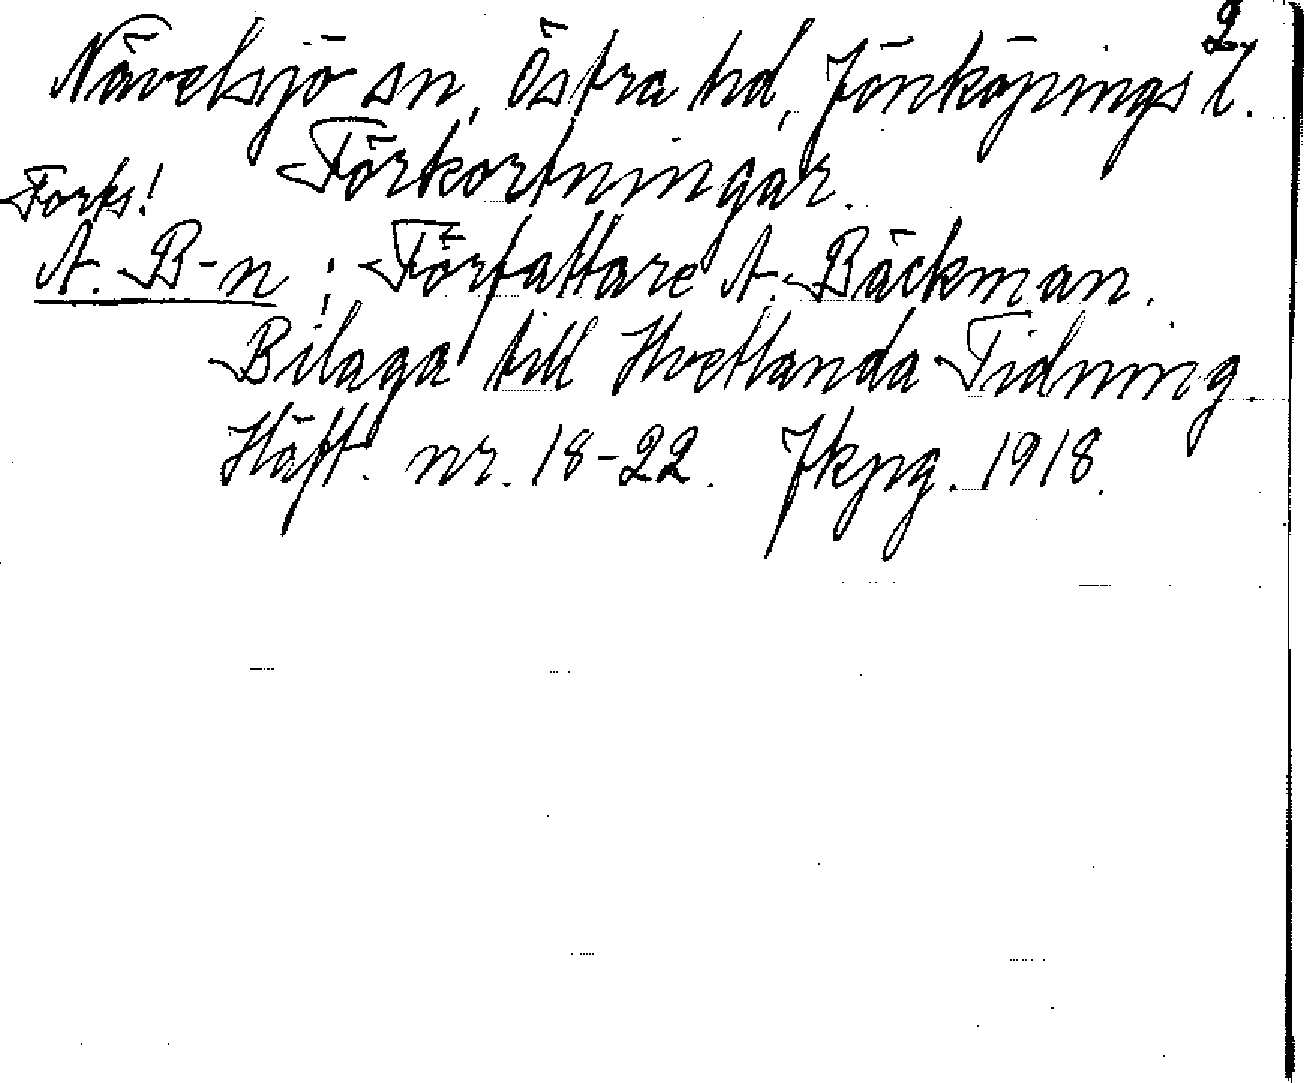 2.
Nävelsjö sn, Östra hd, Jönköpings l.
Förkortningar.
Forts!
A. B-n : Författare A. Bäckman.
Bilaga till Hvetlanda Tidning.
Häft. nr. 18-22. Jkpg. 1918.